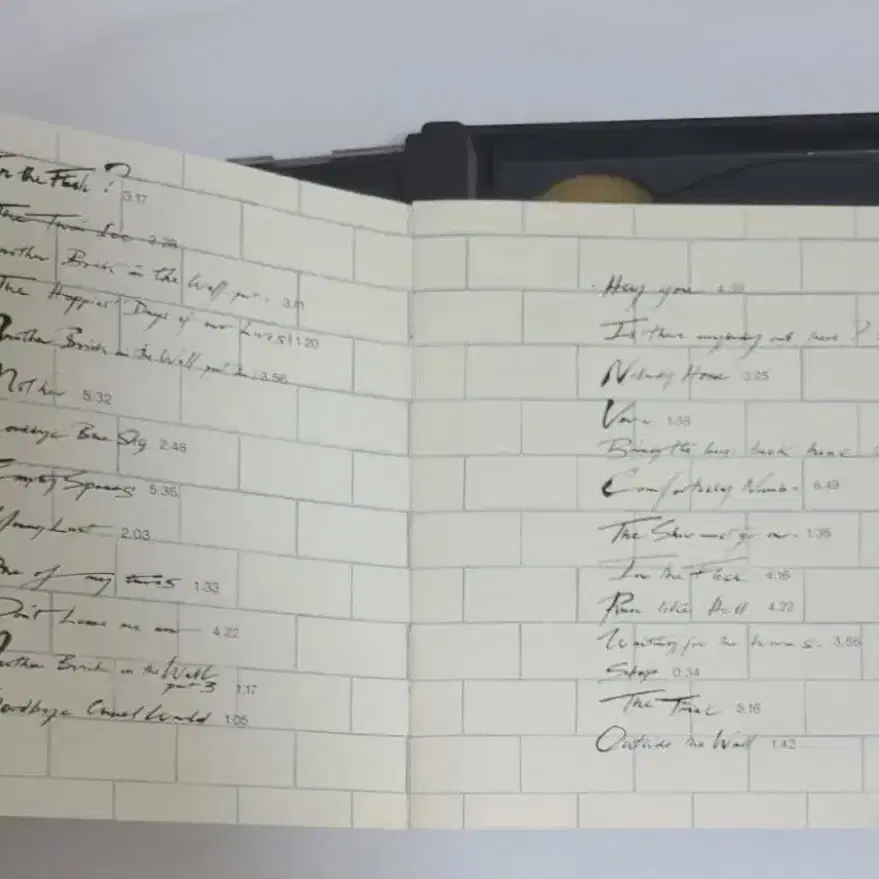 In the Flesh? 3.17
The Thin Ice 2.28
Another Brick in the Wall part 1 3.11
The Happiest Days of our Lives 1.20
Another Brick in the Wall part 2 3.56
Mother 5.32
Goodbye Blue Sky 2.48
Empty Spaces 5.36
Young Lust 2.03
One of my turns 1.33
Don't Leave me now 4.22
Another Brick in the Wall
part 3 1.17
Goodbye Cruel World 1.05
Hey you 4.39
Is there anybody out there?
Nobody Home 3.25
Vera 1.38
Bring the boys back home
Comfortably Numb 6.49
The Show must go on 1.35
In the Flesh 4.16
Run like Hell 4.22
Waiting for the worms 3.56
Stop 0.34
The Trial 5.16
Outside the Wall 1.42